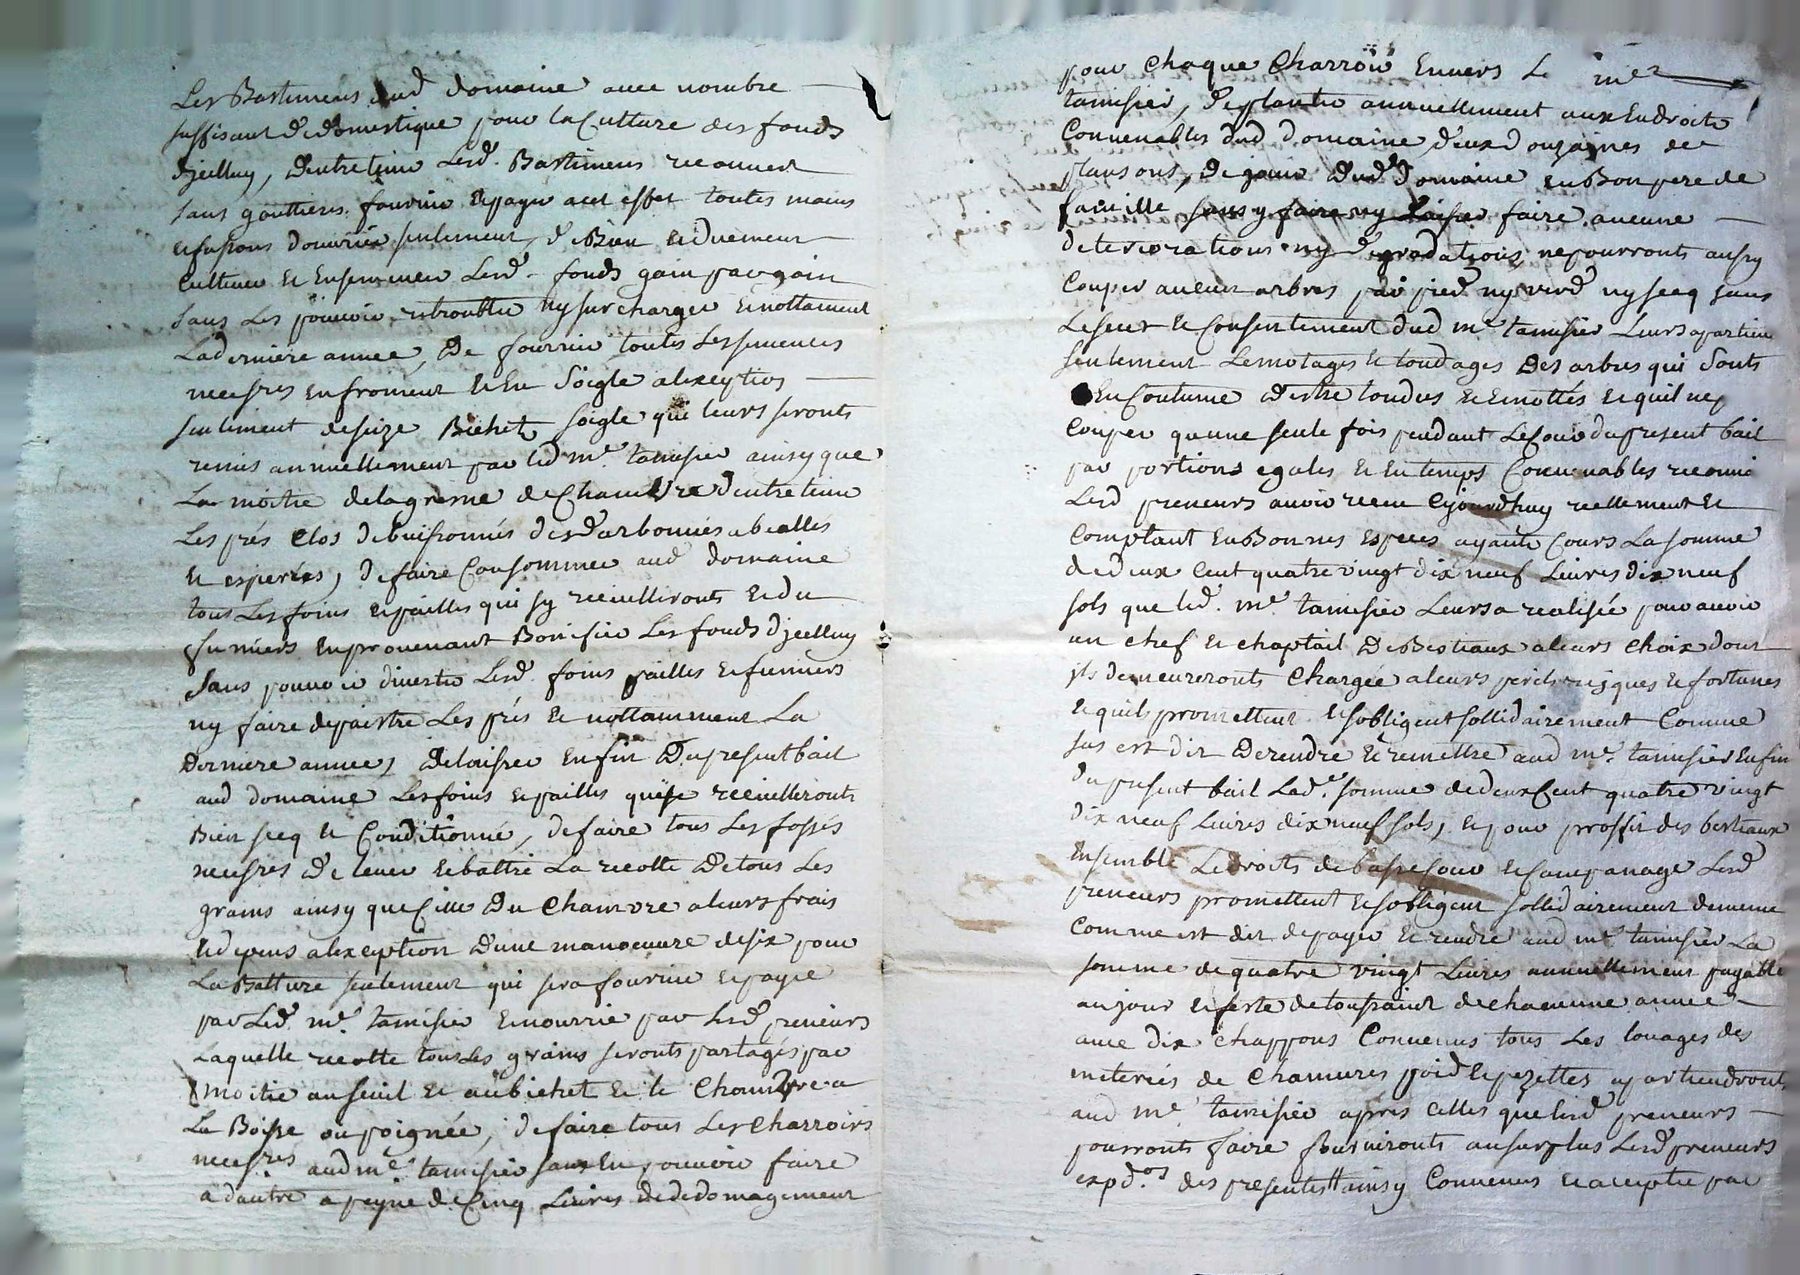 Les Bastimens dud domaine avec nombre
suffisant de domestique pour la Culture des fonds
djcelluy, dentretenir lesd. Bastimens recouvert
sans gouttieres fournir et payer a cet effet toutes mains
et fasons douvrier seulement, de Bien et duement
Cultiver et Ensemencer Lesd. fonds gain par gain
sans Les pouvoir retroubler ny surcharger et nottament
La derniere annee, de fournir toutes Les semences
necessres en froment et En soigle a lexeptios
seulement de seize Bichets soigle qui leurs seronts
remis annuellement par led me. tamisier ainsy que
La moitie de la grene de Chamvre dentretenir
Les prés Clos debuissonnés desdarbonnés abeallés
et esperrés, de faire Consommer aud domaine
tous Les foins et pailles qui sy recuillironts et du
fumiers en provenant Bonifier Les fonds djcelluy
sans pouvoir divertir Lesd. foins pailles et fumiers
ny faire depaistre Les prés et nottamment La
Derniere annee, delaisser en fin Du present bail
aud domaine Les foins et pailles qui se recuillironts
Bien secq et Conditionné, de faire tous Les fossés
necessres De lever et battre La recolte De tous Les
grains ainsy que Celle Du Chamvre a leurs frais
et depens a lexeption Dune manoeuvre de six pour
La Batture seulement qui sera fournie et payee
par Led. me. tamisier et nourrie par Lesd. preneurs
Laquelle recolte tous Les grains seronts partagés par
moitie au seuil et au bichet et le Chamvre a
La Boisse ou poignée, de faire tous Les Charroirs
necessres aud me. tamisier sans En pouvoir faire
a dautre a peyne de Cinq Livres de dedomagement
pour chaque Charroir Envers Le me
tamisier, de planter annuellement aux Endroits
Convenables dud domaine deux douzaines de
plansons, De jouir Dud. Domaine en Bon pere de
famille sans y faire ny Laisser faire aucune
deteriorations ny degradations, ne pourronts aussy
Couper aucun arbres par pied ny verd ny secq sans
Le seut et Consentement dud me. tamisier Leurs apartien
seulement Lemotages et tondages Des arbres qui sonts
En Coutume destre tondus et Emottés et quil ne
Couper quune seule fois pendant Le Cour du present bail
par portions egales et en temps Convenables
Lesd preneurs avoir receu Cejourdhuy reellement et
Comptant en Bonnes Especes ayants Cours La somme
de deux Cent quatre vingt dix neuf Livres dix neuf
sols que led. me. tamisier Leurs a realisée pour avoir
un chef et chaptail De Bestiaux a leurs choix dont
jls demeureronts Chargée a leurs perils risques et fortunes
et quils promettent et sobligent sollidairement Comme
sus est dit De rendre et remettre aud me. tamisier En fin
Du present bail Lad. somme de deux Cent quatre vingt
dix neuf Livres dix neuf sols, et pour proffit des bestiaux
Ensemble Le droits de basse cour et Campanage Lesd
preneurs promettent et sobligent sollidairement de meme
Comme est dit de payer et rendre aud me. tamisier La
somme de quatre vingt Livres annuellement payable
au jour et feste de toussaint de chacunne annee
avec dix chappons Convenus tous Les louages des
meteries de Chamures poid et pezettes apartiendront
aud me. tamisier apres Celles que lesd preneurs
pourronts faire fournironts au surplus Lesd preneurs
expd.on des presentes ainsy Convenus et accepter par